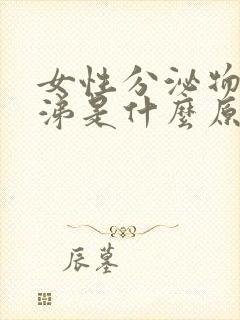 女性分泌物
涕是什麼原
辰墓